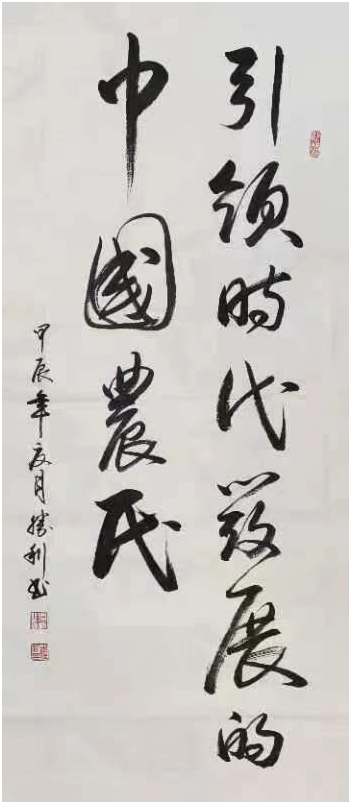 引领時代发展的
中國農民
甲辰年夏月勝利书